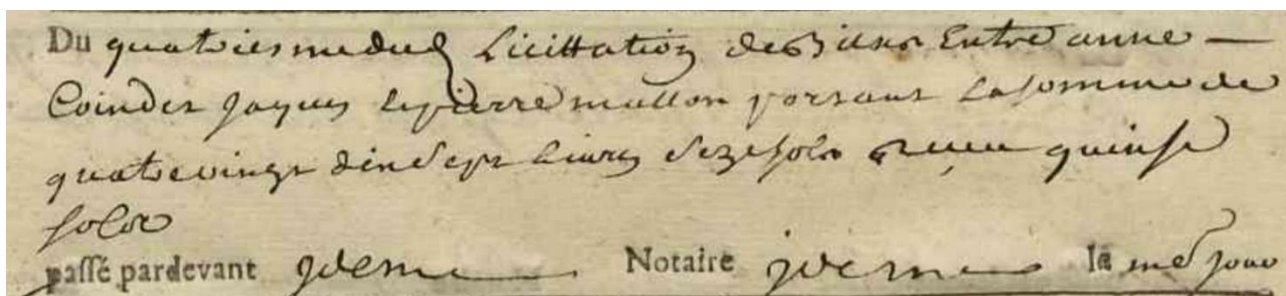 Du quatriesme dud Licittation de Biens Entre anne —
Coindet Jaques et pierre mallon portant La somme de
quatre vingt dix sept Livres seze sols Receu quinse
sols
passé pardevant idem Notaire idem le me jour